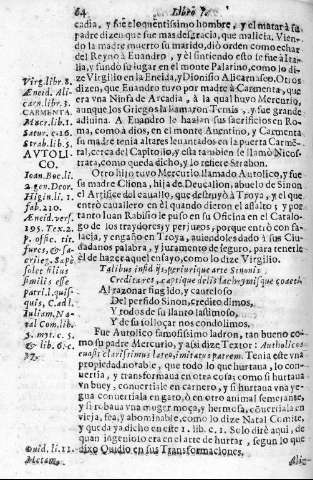 64 Libro I.
cadia, y fue eloquentissimo hombre, y el matar à su
padre dizen que fue mas desgracia, que malicia. Vien-
do la madre muerto su marido, dió orden como echar
del Reyno à Euandro, y él sintiendo esto se fue al Ita-
lia, y fundó su lugar en el monte Palatino, como lo di-
ze Virgilio en la Eneida, y Dionisio Alicarnaseo. Otros
dizen, que Euandro tuvo por madre à Carmenta, que
era vna Ninfa de Arcadia, à la qual huvo Mercurio,
aunque los Griegos la llamaron Temis, y fue grande
adiuina. A Euandro le hazian sus sacrificios en Ro-
ma, como à dios, en el monte Auentino, y Carmenta
su madre tenia altares leuantados en la puerta Carmē-
tal, cerca del Capitolio, y ella tambien se llamò Nicos-
trata, como queda dicho, y lo refiere Strabon.
Otro hijo tuvo Mercurio llamado Autolico, y fue
su madre Cliona, hija de Deucalion, abuelo de Sinon
el Artifice del cauallo, que destruyò à Troya, y el que
entrò cauallero en él quando dieron el assalto; y por
tanto Iuan Rabisio le puso en su Oficina en el Catalo-
go de los traydores y perjuros, porque entrò con fa-
lacia, y engaño en Troya, auiendoles dado à sus Ciu-
dadanos palabra, y juramento de seguro, para tenerle
él de hazer aquel ensayo, como lo dize Virgilio.
Talibus insidijs, periurique arte Sinonis
Creditur res, captique dolis lachrymisque coactis
Al razonar fingido, y cauteloso
Del perfido Sinon, credito dimos,
Y todos de su llanto lastimoso,
Y de su sollozar nos condolimos.
Fue Autolico famosissimo ladron, tan bueno co-
mo su padre Mercurio, y assi dize Textor: Autholicus
euasit clarissimus latro, imitatus patrem. Tenia este vna
propiedad notable, que todo lo que hurtaua, lo con-
uertia, y transformaua en otra cosa; como si hurtaua
vn buey, conuertirle en carnero, y si hurtaua vna ye-
gua conuertirla en garo, ò en otro animal semejante,
y si robaua vna muger moça, y hermosa, cōuertirla en
vieja, fea, y abominable, como lo dize Natal Comite,
y queda ya dicho en este 1. lib. c. 1. Solo dirè aqui, de
quan ingenioso era en el arte de hurtar, segun lo que
dixo Ouidio en sus Transformaciones.
Virg. libr. 8.
Æneid. Ali-
carn. libr. 3.
CARMENTA.
Alicar. lib. 1.
Satur. c. 16.
Strab. lib. 5.
AVTOLI-
CO.
Ioan. Boc. li.
2. gen. Deor.
Higin. li. 1.
fab. 210.
Æneid. vers.
195. Tex. 2.
p. offic. tit.
Natal Com. lib.
Ouid. li. 11.
Metam.